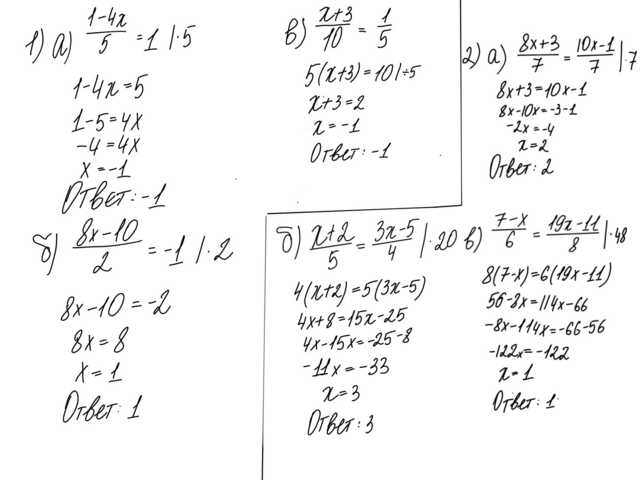 1) а) (1-4x)/5 = 1 | ·5
1-4x=5
1-5=4x
-4=4x
x=-1
Ответ: -1
б) (8x-10)/2 = -1 | ·2
8x-10=-2
8x=8
x=1
Ответ: 1
в) (x+3)/10 = 1/5
5(x+3)=10 | ÷5
x+3=2
x=-1
Ответ: -1
2) а) (8x+3)/7 = (10x-1)/7 | ·7
8x+3=10x-1
8x-10x=-3-1
-2x=-4
x=2
Ответ: 2
б) (x+2)/5 = (3x-5)/4 | ·20
4(x+2)=5(3x-5)
4x+8=15x-25
4x-15x=-25-8
-11x=-33
x=3
Ответ: 3
в) (7-x)/6 = (19x-11)/8 | ·48
8(7-x)=6(19x-11)
56-8x=114x-66
-8x-114x=-66-56
-122x=-122
x=1
Ответ: 1